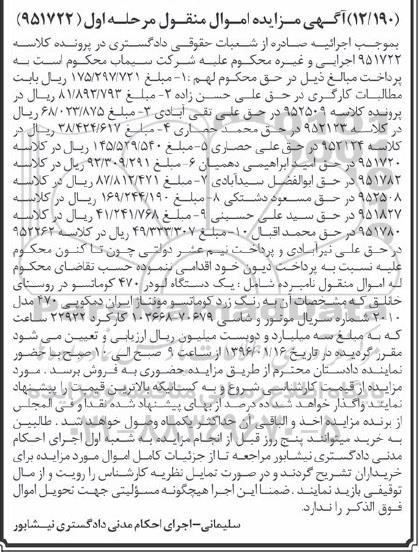 (۱۲/۱۹۰) آگهی مزایده اموال منقول مرحله اول (۹۵۱۷۲۲)
بموجب اجرائیه صادره از شعبات حقوقی دادگستری در پرونده کلاسه
۹۵۱۷۲۲ اجرایی و غیره محکوم علیه شرکت سیماب محکوم است به
پرداخت مبالغ ذیل در حق محکوم لهم :۱- مبلغ ۱۷۵/۲۹۷/۷۲۱ ریال بابت
مطالبات کارگری در حق علی حسن زاده ۲- مبلغ ۸۱/۸۹۳/۷۹۳ ریال در
پرونده کلاسه ۹۵۲۵۰۹ در حق علی تقی آبادی ۳- مبلغ ۶۸/۰۲۳/۸۷۵ ریال
در کلاسه ۹۵۲۱۲۳ در حق محمد حصاری ۴- مبلغ ۳۸/۴۲۴/۶۱۷ ریال در
کلاسه ۹۵۲۱۲۴ در حق علی حصاری ۵- مبلغ ۱۴۵/۵۲۹/۵۴۰ ریال در کلاسه
۹۵۱۷۲۰ در حق امید ابراهیمی دهمیان ۶- مبلغ ۹۲/۳۰۹/۲۹۱ ریال در کلاسه
۹۵۱۷۸۲ در حق ابوالفضل سیدآبادی ۷- مبلغ ۸۷/۸۱۲/۴۷۱ ریال در کلاسه
۹۵۲۵۰۸ در حق مسعود دشتکی ۸- مبلغ ۱۶۹/۲۴۴/۱۹۰ ریال در کلاسه
۹۵۱۸۲۷ در حق سید علی حسینی ۹- مبلغ ۴۱/۲۴۱/۷۶۸ ریال در کلاسه
۹۵۱۷۸۰ در حق محمد اقبال ۱۰- مبلغ ۴۹/۳۳۳/۳۰۷ ریال در کلاسه ۹۵۲۲۶۲
در حق علی نیرآبادی و پرداخت نیم عشر دولتی چون تا کنون محکوم
علیه نسبت به پرداخت دیون خود اقدامی ننموده حسب تقاضای محکوم
له اموال منقول نامبرده شامل : یک دستگاه لودر ۴۷۰ کوماتسو در روستای
خالق که مشخصات آن به رنگ زرد کوماتسو مونتاژ ایران دمکوپی ۴۷۰ مدل
۲۰۱۰ شماره سریال موتور و شاسی ۱۰۳۶۶۸۷۰۶۷۹ کارکرد ۲۲۹۲۲ ساعت
که به مبلغ سه میلیارد و دویست میلیون ریال ارزیابی و تعیین می شود
مقرر گردیده در تاریخ ۱۳۹۶/۰۱/۱۶ از ساعت ۹ صبح الی ۱۰ صبح با حضور
نماینده دادستان محترم از طریق مزایده حضوری به فروش برسد . مورد
مزایده از قیمت کارشناسی شروع و به کسانیکه بالاترین قیمت را پیشنهاد
نمایند واگذار خواهد شد ده درصد از بهای پیشنهاد شده نقدا و فی المجلس
از برنده مزایده اخذ و الباقی آن حداکثر تا یکماه وصول خواهد شد . طالبین
به خرید میتوانند پنج روز قبل از انجام مزایده به شعبه اول اجرای احکام
مدنی دادگستری نیشابور مراجعه تا از جزئیات کامل اموال مورد مزایده برای
خریداران تشریح گردند و در صورت تمایل نظریه کارشناس را رویت و از مال
توقیفی بازید نمایند . ضمنا این اجرا هیچگونه مسئولیتی جهت تحویل اموال
فوق الذکر را ندارد.
سلیمانی- اجرای احکام مدنی دادگستری نیشابور